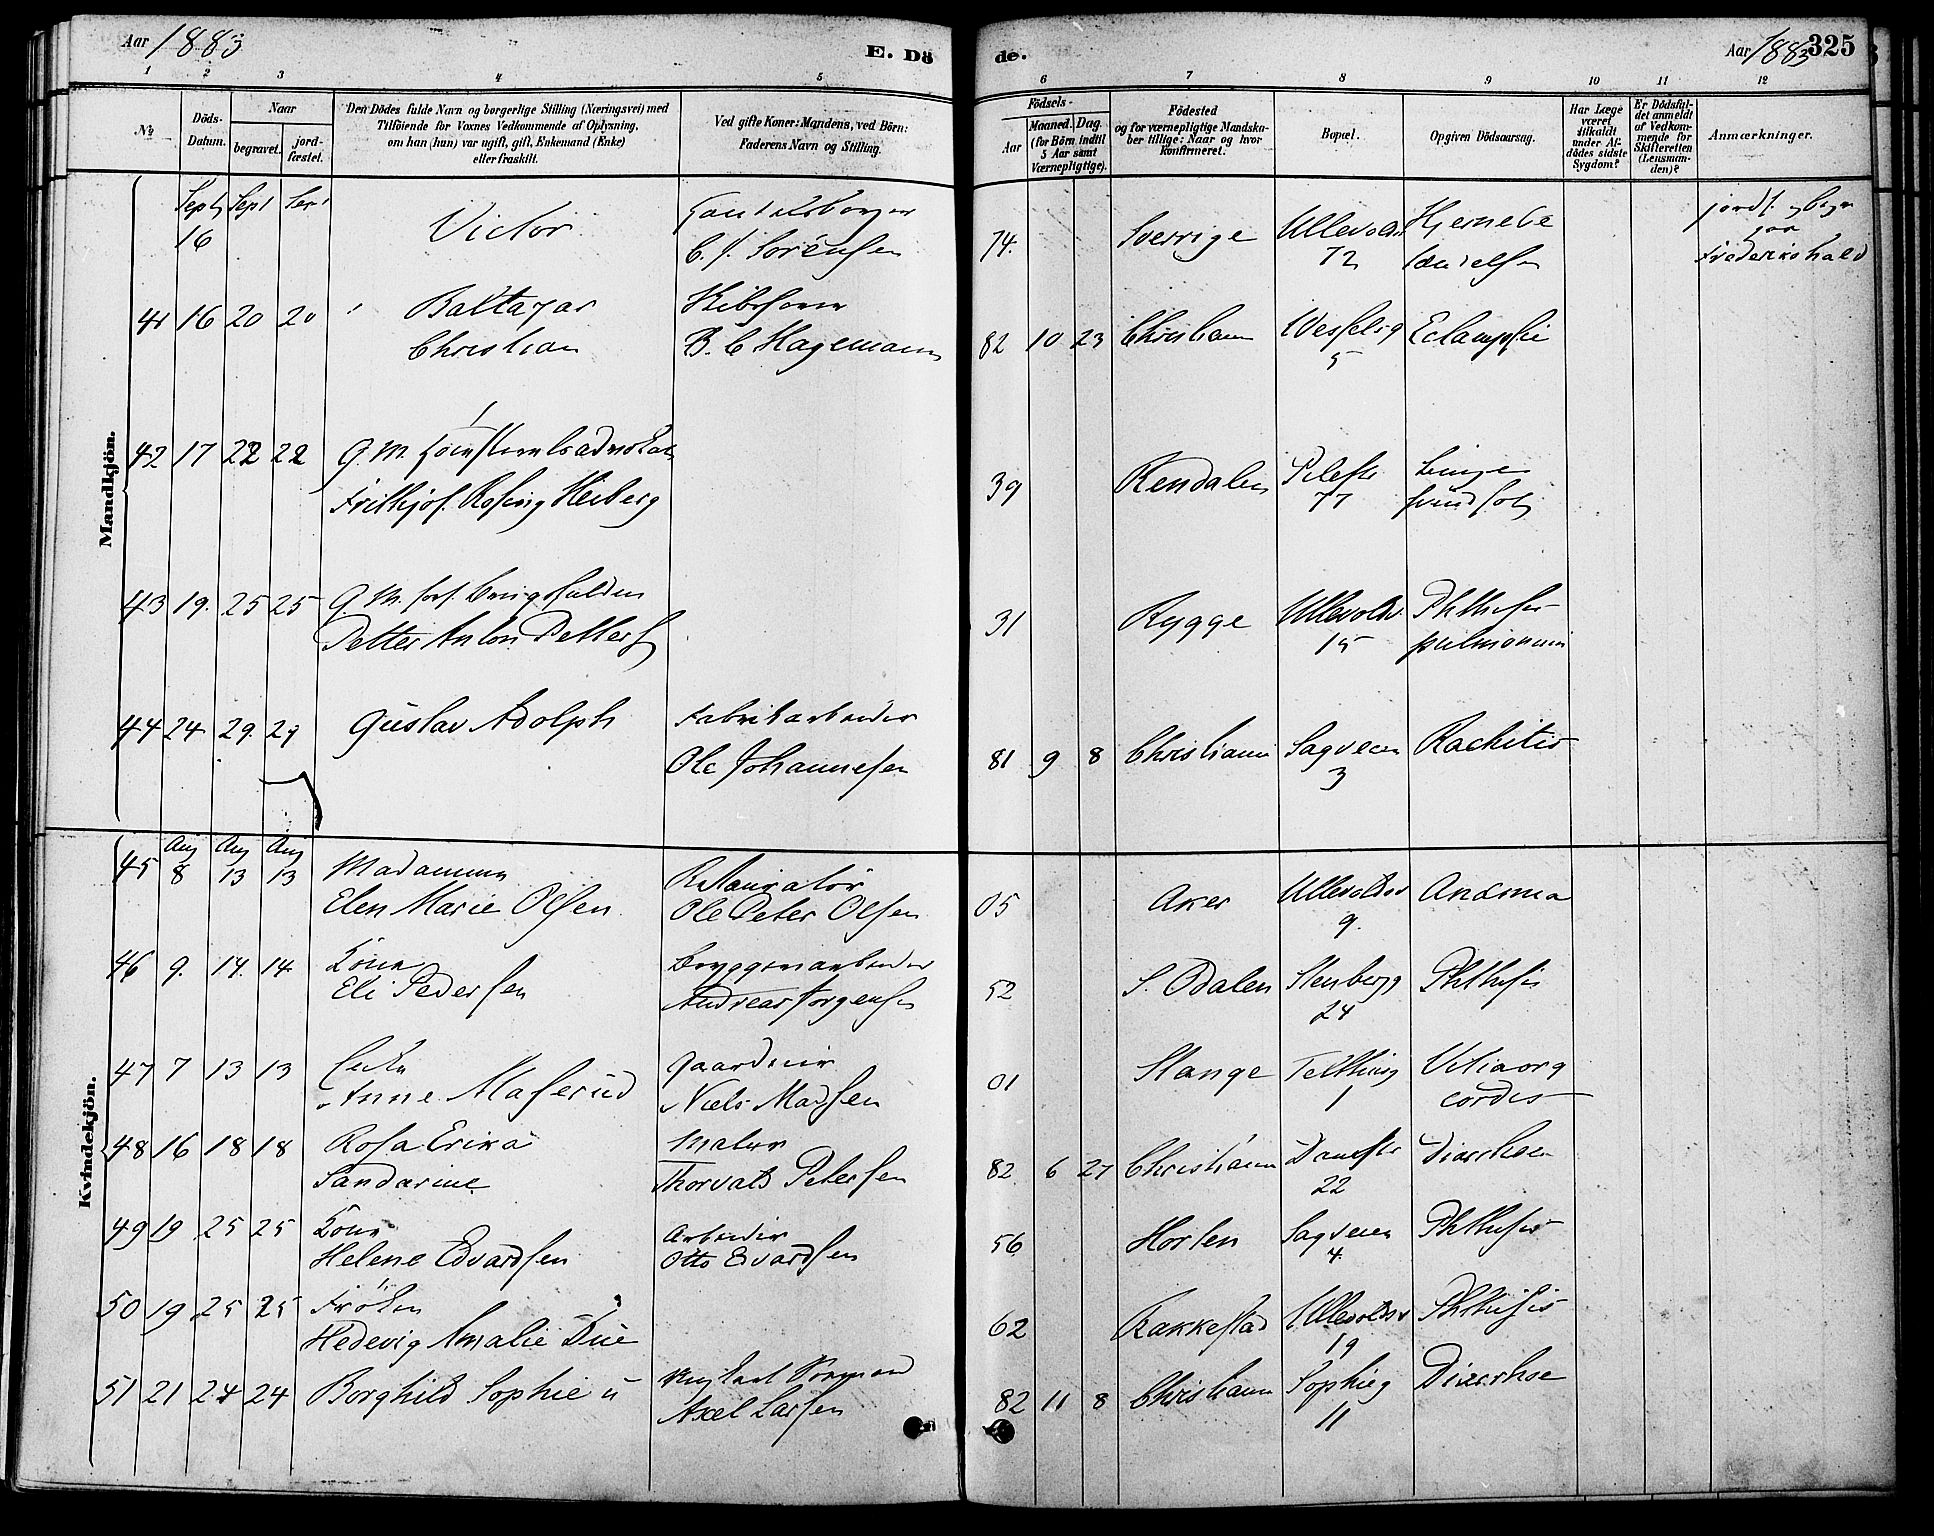 Aar 1883 E. Dö de. Aar 1883 325
1 2 3 4 5 6 7 8 9 10 11 12
No
Döds-
Datum.
Naar
begravet.
jord-
fæstet.
Den Dödes fulde Navn og borgerlige Stilling (Næringsvei) med
Tilföiende for Voxnes Vedkommende af Oplysning,
om han (hun) var ugift, gift, Enkemand (Enke)
eller fraskilt.
Ved gifte Koner: Mandens, ved Börn:
Faderens Navn og Stilling.
Födsels-
Aar
Maaned. Dag.
(for Börn indtil
5 Aar samt
Værnepligtige).
Födested
og for værnepligtige Mandska-
ber tillige: Naar og hvor
konfirmeret.
Bopæl.
Opgiven Dödsaarsag.
Har Læge
været
tilkaldt
under Af-
dödes sidste
Sygdom?
Er Dödsfal-
det anmeldt
af Vedkom-
mende for
Skifteretten
(Lensman-
den)?
Anmærkninger.
Mandkjön.
Sept Sept Sept
16 Victor
C. J. Sörensen
74. Sverrige Ullevoldsv
72
Hjernebe
tændelse
jordf. og begr
paa
Frederikshald
41 16 20 20 Baltazar
Christian
B. C Hagemann
82 10 23 Christiania Wesselsg
5
Eclampsie
42 17 22 22 G. M. Höiesteretsadvokat
Frithjof Rosing Heiberg
39 Rendalen Pilestr
77
Lunge
svindsot
43 19. 25 25 G. M.
Petter Anton Petters
31 Rygge Ullevoldsv
15
Phthisis
pulmonum
44 24 29. 29 Gustav Adolph Fabrikarbeider
Ole Johannesen
81 9 8 Christiania Sagveien
3
Rachitis
Kvindekjön.
Aug Aug Aug
45 8 13 13 Madamme
Elen Marie Olsen
Restauratör
Ole Peter Olsen
05 Aker Ullevoldsv
9.
Anæmia
46 9. 14. 14. Kone
Eli Pedersen
Bryggeriarbeider
Andreas Jorgensen
52 S. Odalen Stenbergg
24
Phthisis
47 7 13 13 Enke
Anne Maserud
Gaardeier
Niels Madsen
01 Stange Telthusg
1
Vitia org
cordis
48 16 18 18 Rosa Erika
Sandarine
Maler
Thorvald Petersen
82 6 27 Christiania
22
Diarrhoea
49 19 25 25 Kone
Helene Edvardsen
Arbeider
Otto Edvardsen
56 Horten Sagveien
4.
Phthisis
50 19 25 25 Fröken
Hedevig Amalie Due
62 Rakkestad Ullevoldsv
19
Phthisis
51 21 24 24 Borghild Sophie u
Axel Larsen
82 11 8 Christiania Sophieg
11
Diarrhoe